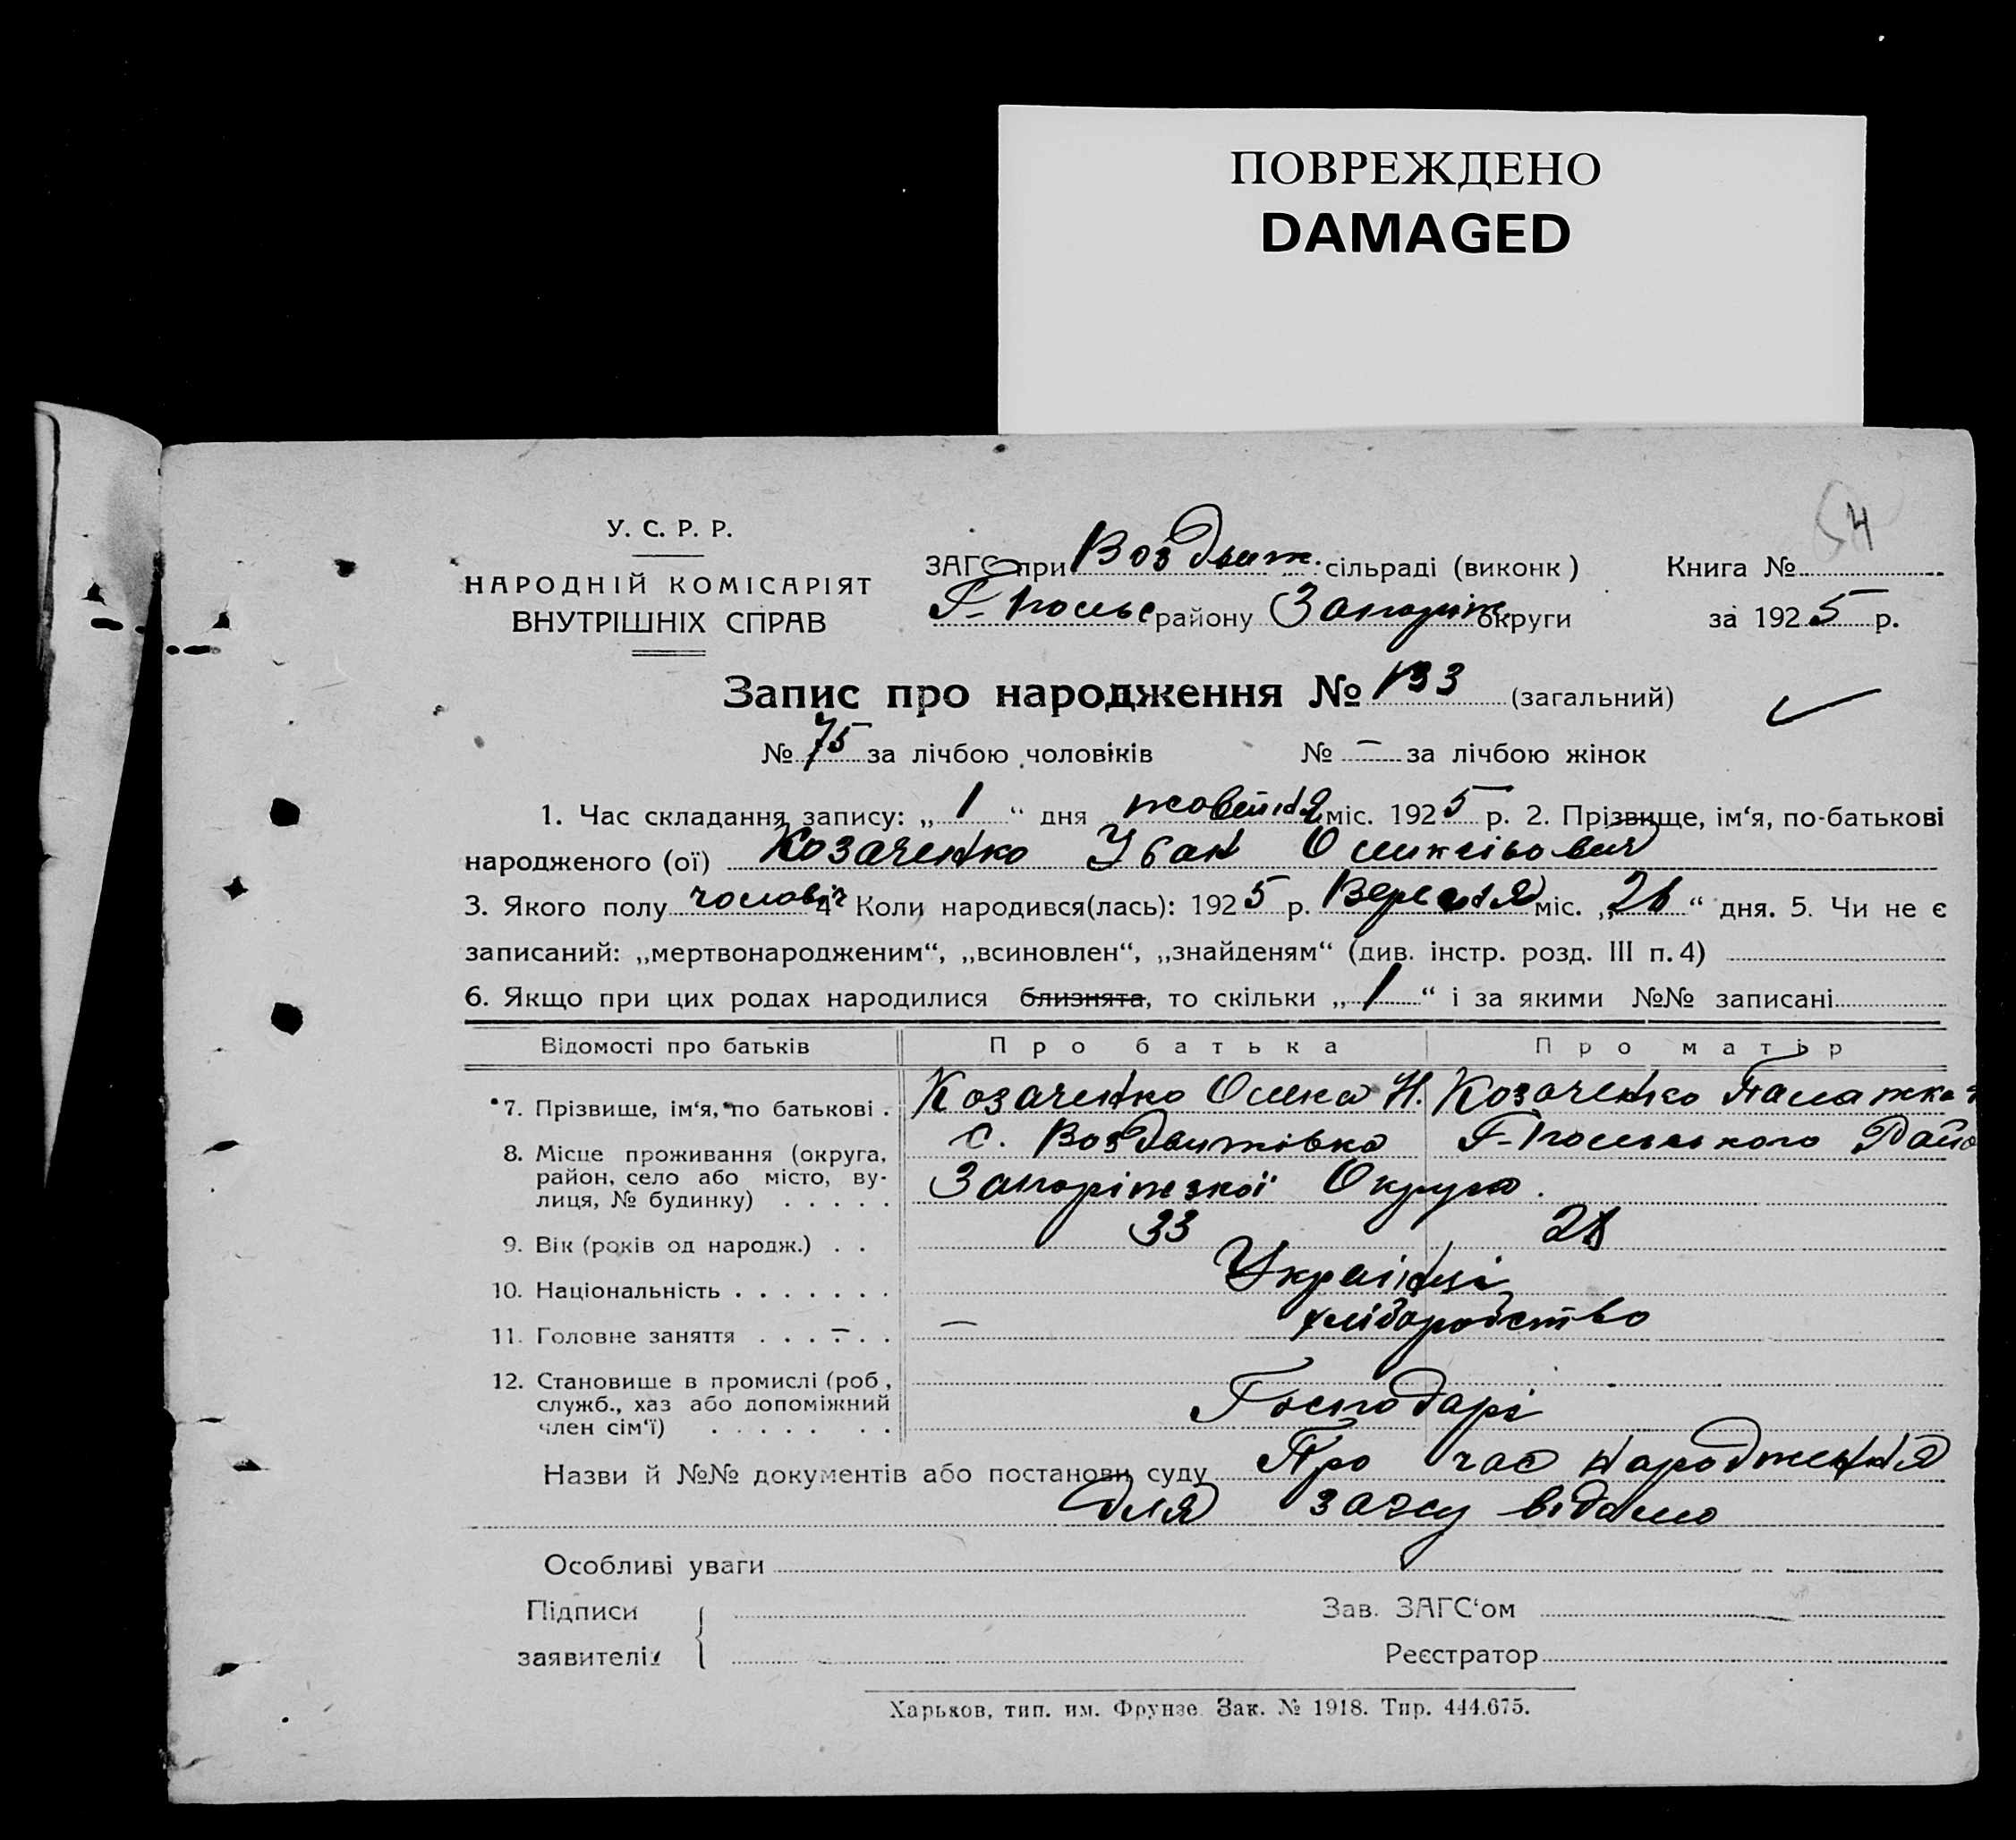 ПОВРЕЖДЕНО
DAMAGED
4
У. С. Р. Р.
НАРОДНІЙ КОМІСАРІЯТ
ВНУТРІШНІХ СПРАВ
ЗАГС при Воздвиж. сільраді (виконк)
Г-Польс району Запоріж. округи
Книга №
за 1925 р.
Запис про народження № 133 (загальний)
№ 75 за лічбою чоловіків № — за лічбою жінок
1. Час складання запису: „1“ дня жовтня міс. 1925 р. 2. Прізвище, ім‘я, по-батькові
народженого (ої) Козаченко Іван
3. Якого полу чоловіч 4 Коли народився(лась): 1925 р. Вересня міс. „28“ дня. 5. Чи не є
записаний: „мертвонародженим“, „всиновлен“, „знайденям“ (див. інстр. розд. III п. 4)
6. Якщо при цих родах народилися близнята, то скільки „1“ і за якими №№ записані
Відомості про батьків Про батька Про матір
7. Прізвище, ім‘я, по батькові . Козаченко Олекса Н. Козаченко Палажка
8. Місце проживання (округа, район, село або місто, вулиця, № будинку) . . . . . с. Воздвижівка Г-Польського Райо
Запоріжзкої Округи.
9. Вік (років од народж.) . . 33 28
10. Національність . . . . . . . Українці
11. Головне заняття . . . . . . — хліборобство
12. Становище в промислі (роб, служб., хаз або допоміжний член сім‘ї) . . . . . . . Господарі
Назви й №№ документів або постанови суду Про час народження
для загсу відомо
Особливі уваги
Підписи
заявителів
Зав. ЗАГС‘ом
Реєстратор
Харьков, тип. им. Фрунзе. Зак. № 1918. Тир. 444.675.